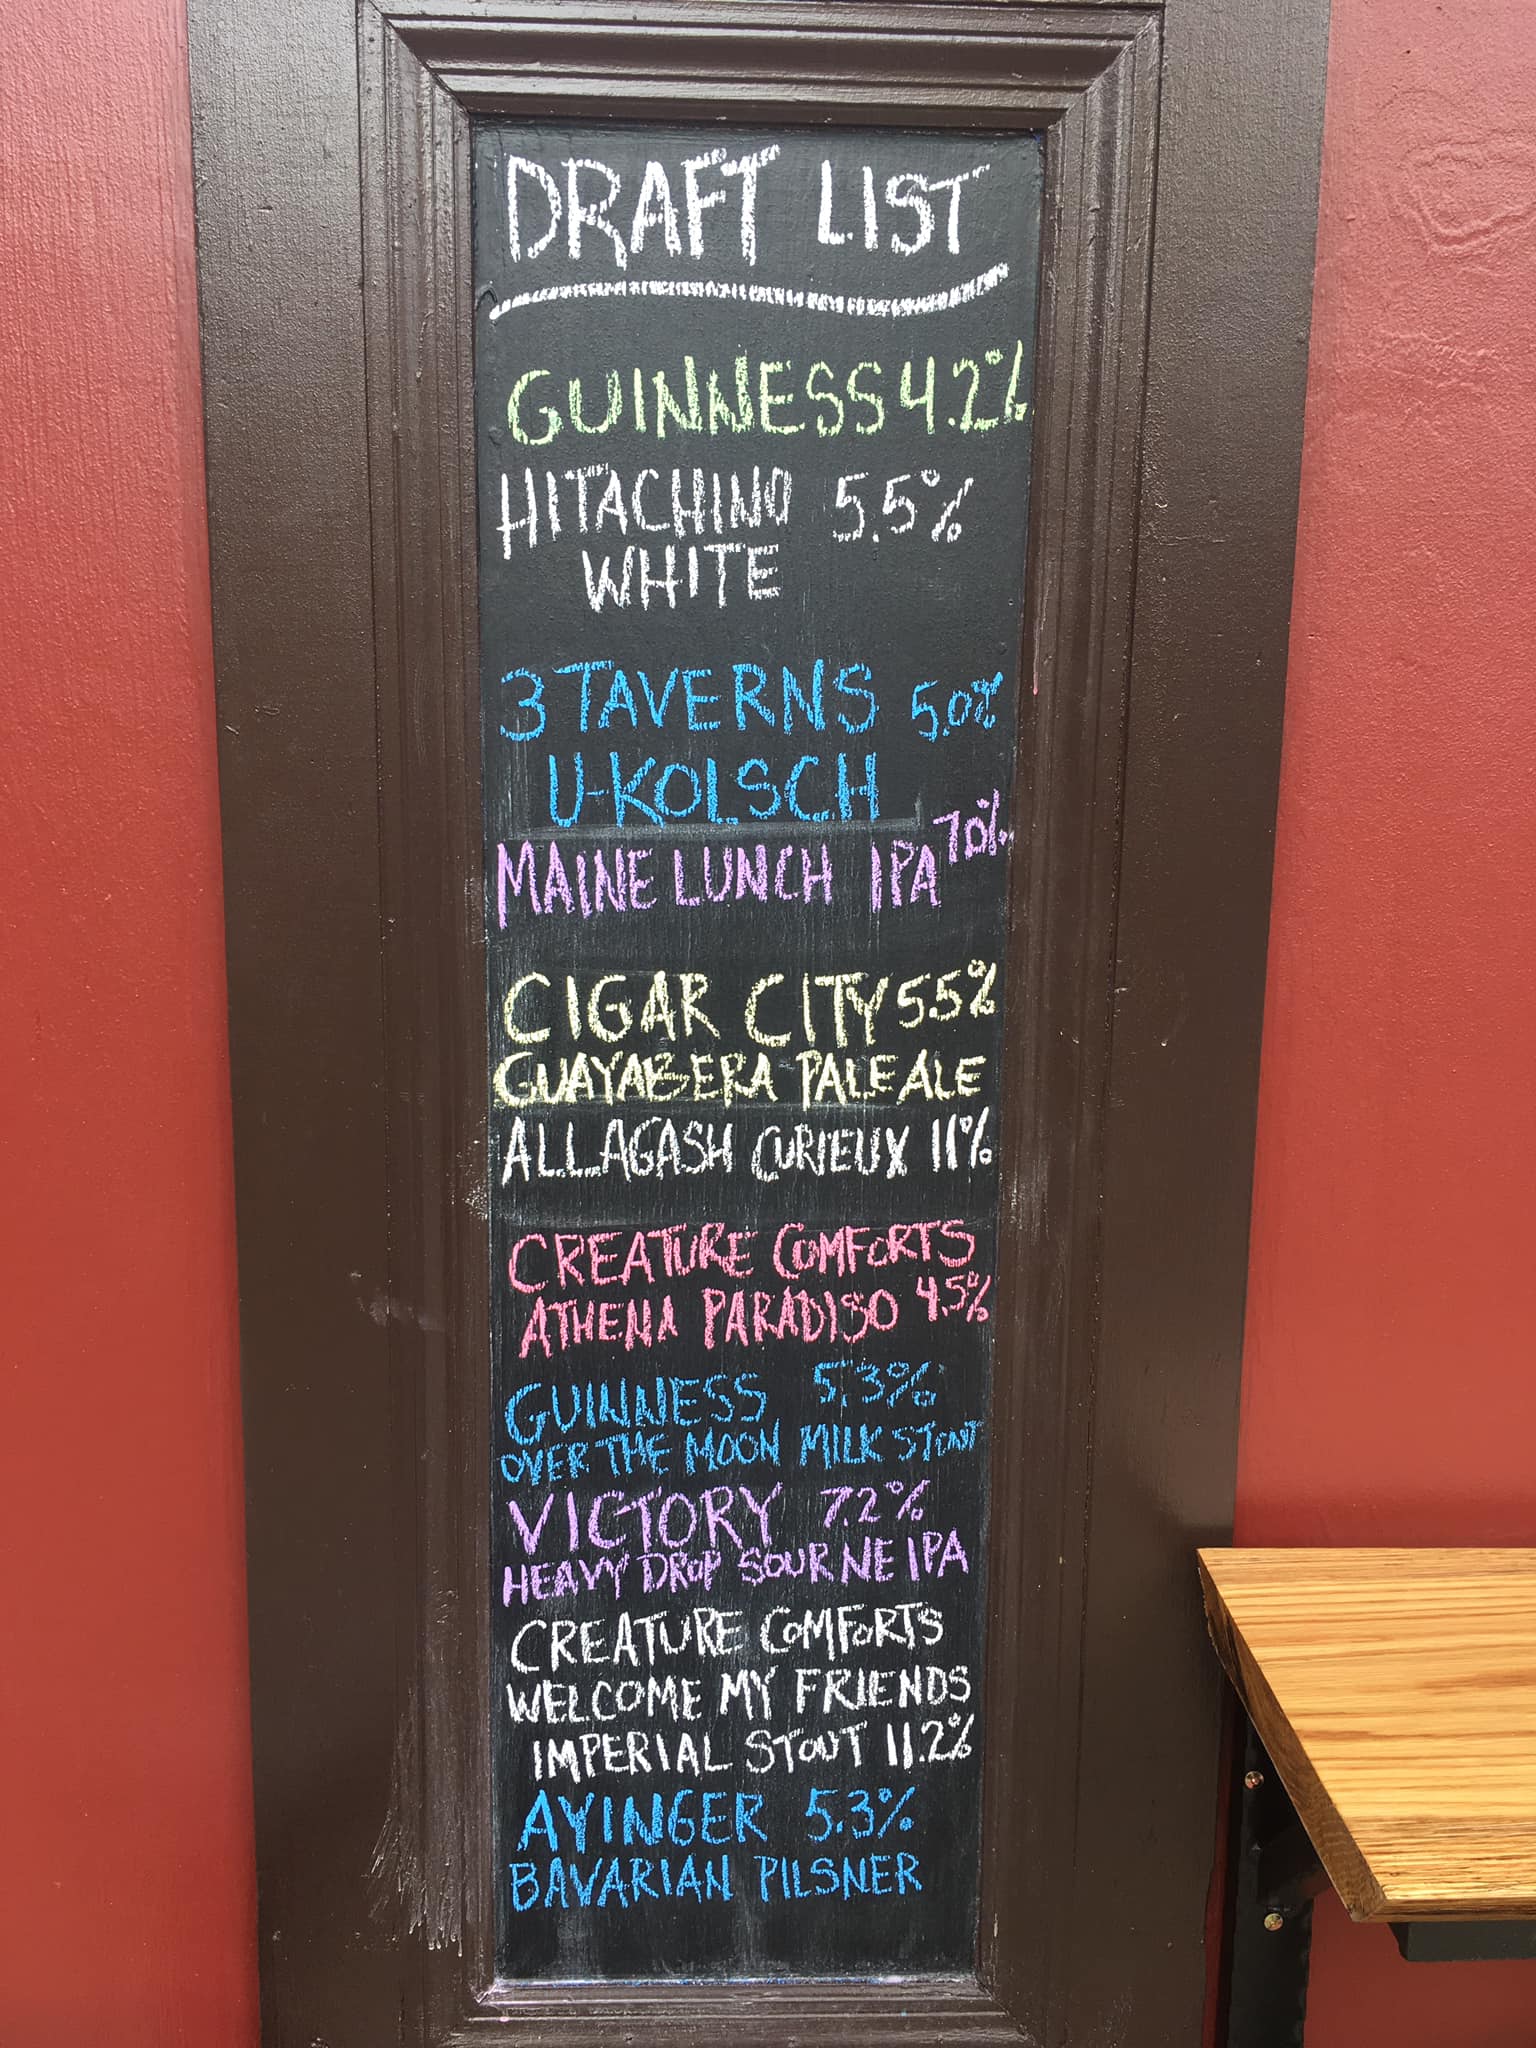 DRAFT LIST
GUINNESS 4.2%
HITACHINO 5.5%
WHITE
3 TAVERNS 5.0%
U-KOLSCH
MAINE LUNCH IPA 7.0%
CIGAR CITY 5.5%
GUAYABERA PALE ALE
ALLAGASH CURIEUX 11%
CREATURE COMFORTS
ATHENA PARADISO 4.5%
GUINNESS 5.3%
OVER THE MOON MILK STOUT
VICTORY 7.2%
HEAVY DROP SOUR NE IPA
CREATURE COMFORTS
WELCOME MY FRIENDS
IMPERIAL STOUT 11.2%
AYINGER 5.3%
BAVARIAN PILSNER